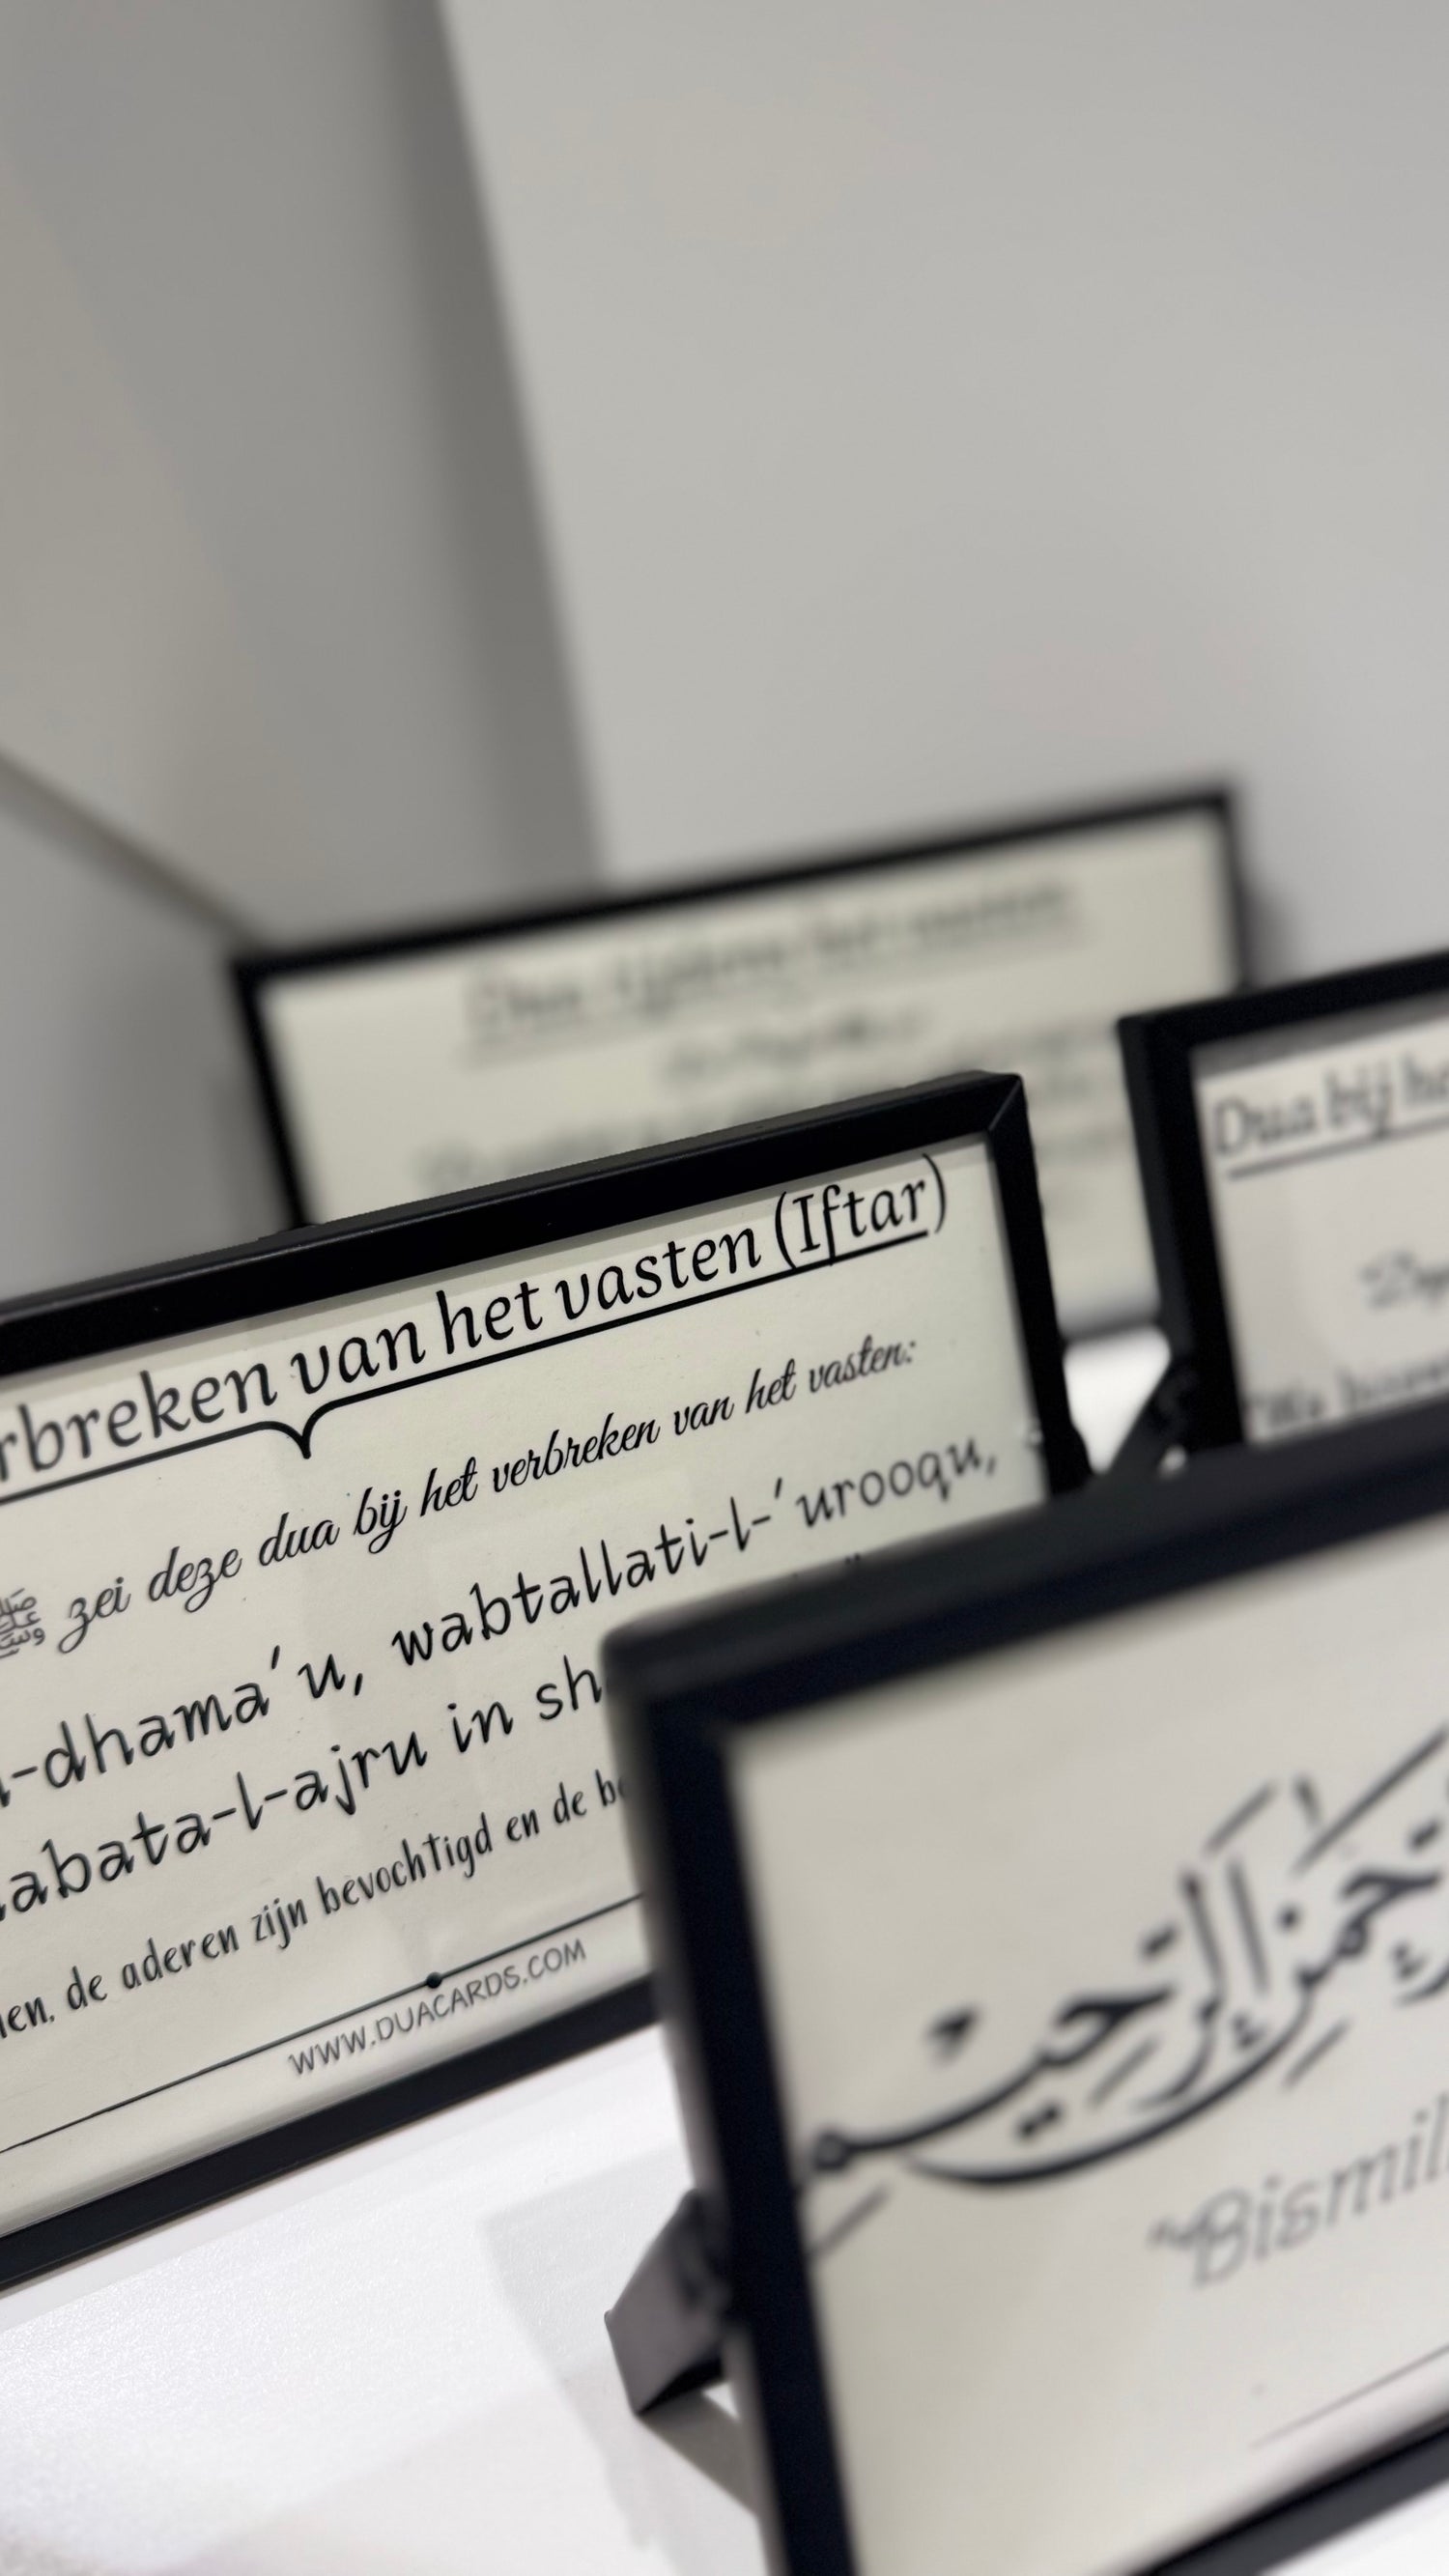 Dua tijdens het vasten
Dua bij he
rbreken van het vasten (Iftar)
ﷺ zei deze dua bij het verbreken van het vasten:
-dhama'u, wabtallati-l-'urooqu,
abata-l-ajru in sh
en, de aderen zijn bevochtigd en de be
WWW.DUACARDS.COM
الرَّحْمٰنِ الرَّحِيمِ
"Bismil